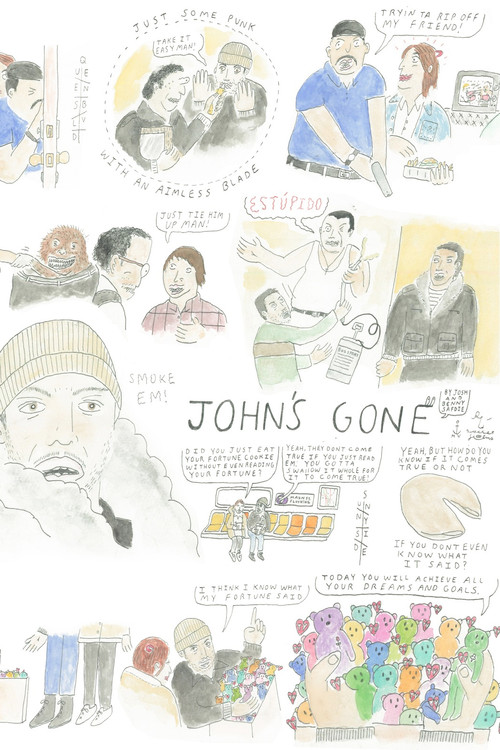 JUST SOME PUNK
WITH AN AIMLESS BLADE
TAKE IT
EASY MAN!
TRYIN TA RIP OFF
MY FRIEND!
JUST TIE HIM
UP MAN!
¡ESTÚPIDO!
SMOKE
EM!
JOHN'S GONE
BY JOSH
AND
BENNY
SAFDIE
DID YOU JUST EAT
YOUR FORTUNE COOKIE
WITHOUT EVEN READING
YOUR FORTUNE?
YEAH, THAT DONT COME
TRUE IF YOU JUST READ
EM. YOU GOTTA
SWALLOW IT WHOLE FOR
IT TO COME TRUE!
YEAH, BUT HOW DO YOU
KNOW IF IT COMES
TRUE OR NOT
IF YOU DONT EVEN
KNOW WHAT
IT SAID?
I THINK I KNOW WHAT
MY FORTUNE SAID
TODAY YOU WILL ACHIEVE ALL
YOUR DREAMS AND GOALS.